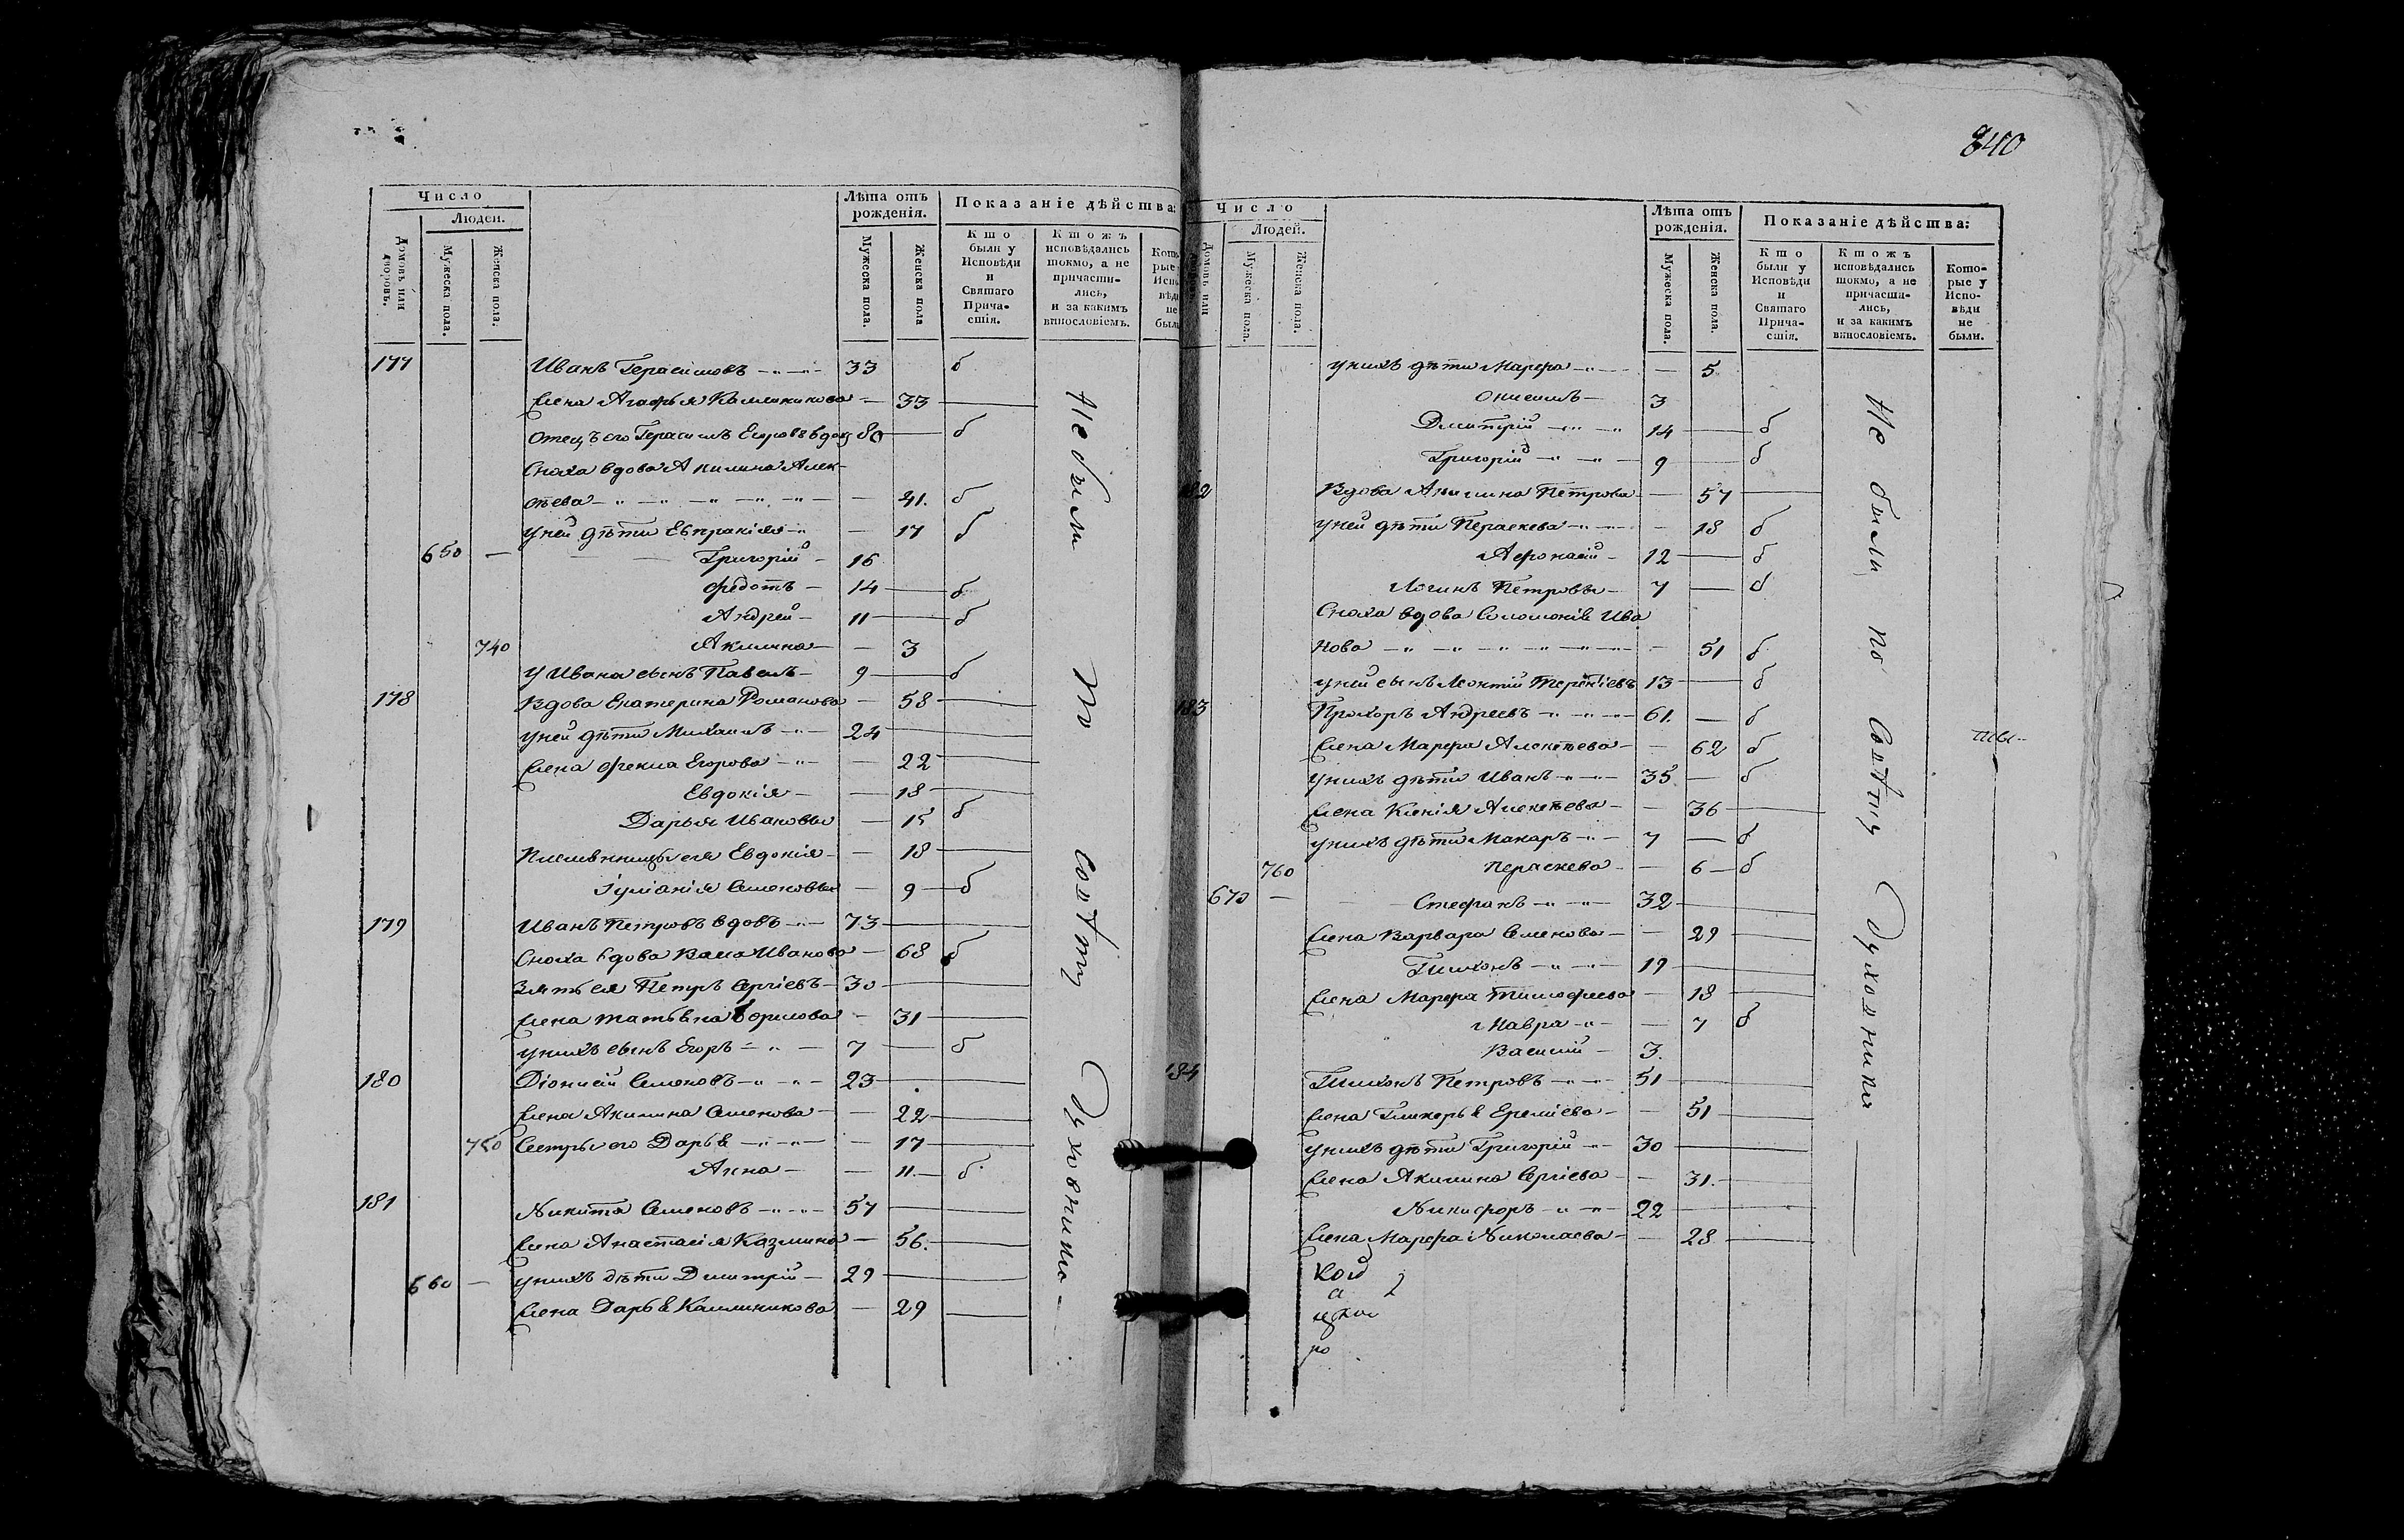 840
Число
Людей.
Домовъ или дворовъ.
Мужеска пола.
Женска пола.
Лѣта отъ рожденія.
Мужеска пола.
Женска пола
Показаніе дѣйства:
Кто были у Исповѣди и Святаго Прича-стія.
Ктожъ исповѣдались токмо, а не причасти-лись, и за какимъ винословіемъ.
177 Иванъ Герасимовъ 33 б
Жена Агафья Калиникова 33
Отецъ его Герасимъ Егоровъ вдовъ 80 б
Сноха вдова Акилина Алек-
сѣева 41. б
У ней дѣти Евпраксія 17 б
650 — Григорій 16
Федотъ 14 б
Андрей 11 б
740 Акилина 3
У Ивана сынъ Павелъ 9 б
178 Вдова Екатерина Романова 58
У ней дѣти Михаилъ 24
Жена Фекла Егорова 22
Евдокія 18
Дарья Ивановы 15 б
Племянницы ея Евдокія 18
Іуліанія Семеновы 9 б
179 Иванъ Петровъ вдовъ 73
Сноха вдова Васа Иванова 68 б
Зять ея Петръ Сергіевъ 30
Жена Татьяна 31
У нихъ сынъ Егоръ 7 б
180 Діонисій Семеновъ 23
Жена Акилина Семенова 22
750 Сестры его Дарья 17
Анна 11. б
181 Никита Семеновъ 57
Жена Анастасія Казмина 56.
660 — У нихъ дѣти Дмитрій 29
Жена Дарья Калиникова 29
Не были по Сомѣнію Духовника
Число
Людей.
Мужеска пола.
Женска пола.
Лѣта отъ рожденія.
Мужеска пола.
Женска пола.
Показаніе дѣйства:
Кто были у Исповѣди и Святаго Прича-стія.
Ктожъ исповѣдались токмо, а не причасти-лись, и за какимъ винословіемъ.
Кото-рые у Испо-вѣди не были.
У нихъ дѣти Марфа 5
Онисимъ 3
Дмитрій 14 б
Григорій 9 б
182 Вдова Акилина Петрова 57
У ней дѣти Параскева 18 б
Афонасій 12 б
Логинъ Петровы 7 б
Сноха вдова Соломонія Ива
нова 51 б
У ней сынъ Леонтій Терентіевъ 13 б
183 Прохоръ Андреевъ 61. б
Жена Марфа Алексѣева 62 б
У нихъ дѣти Иванъ 35 б
Жена Ксенія Алексѣева 36
У нихъ дѣти Макаръ 7 б
760 Параскева 6 б
670 — Стефанъ 32
Жена Варвара Семенова 29
Тихонъ 19
Жена Марфа Тимофеева 18
Мавра 7 б
Василій 3.
184 Тихонъ Петровъ 51
Жена Гликерья Ереміева 51
У нихъ дѣти Григорій 30
Жена Акилина Сергіева 31.
Никифоръ 22
Жена Марфа Николаева 28
Не были по Сомѣнію Духовника